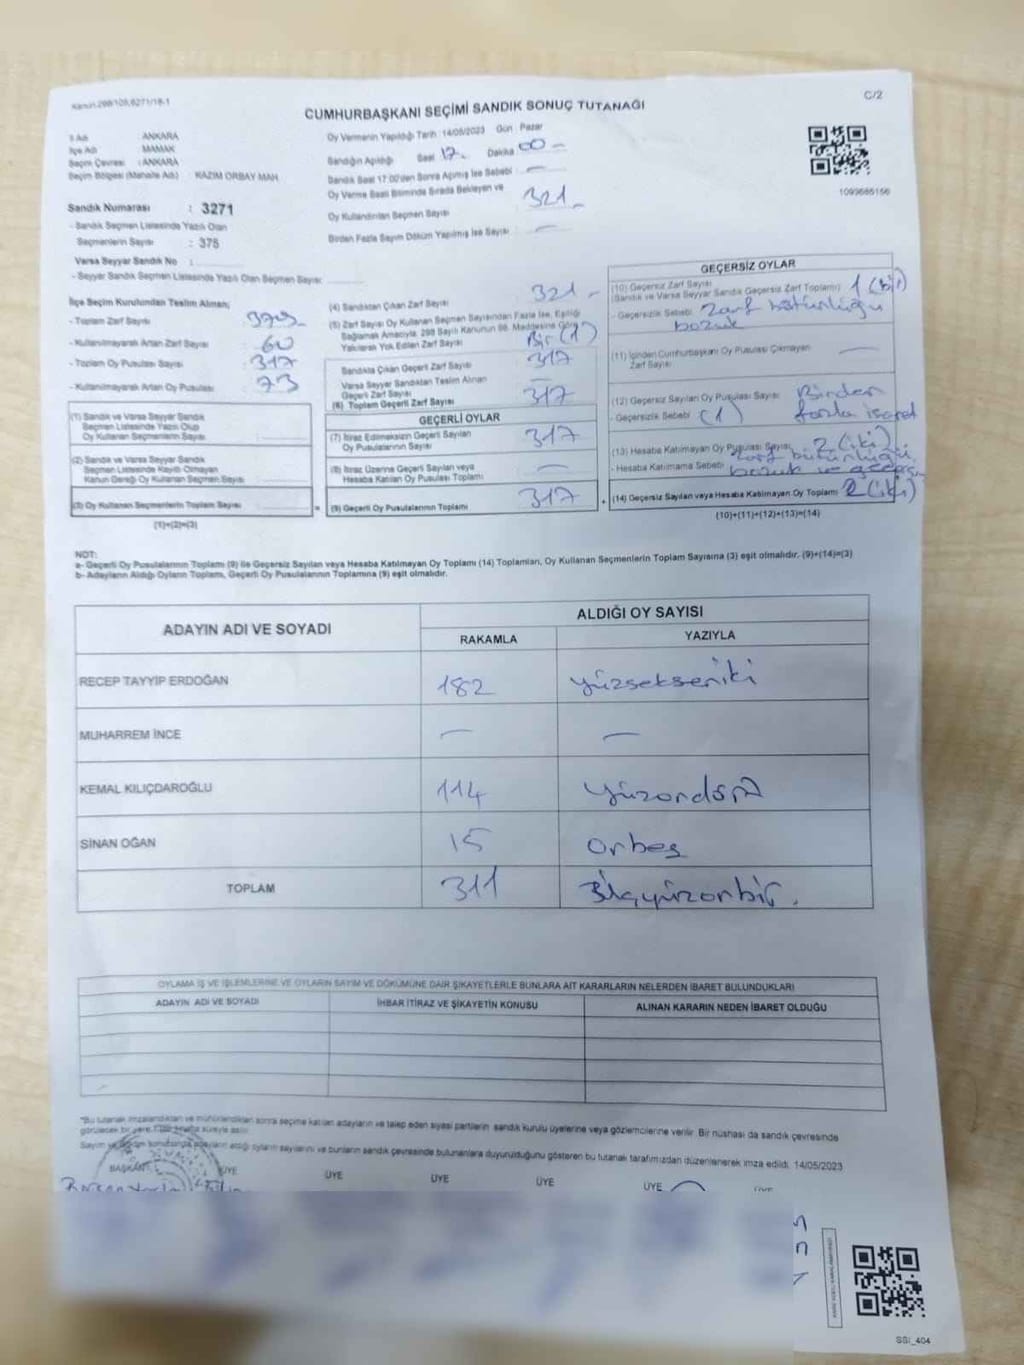 Kanun:298/105,6271/18-1
C/2
CUMHURBAŞKANI SEÇİMİ SANDIK SONUÇ TUTANAĞI
İl Adı ANKARA
İlçe Adı MAMAK
Seçim Çevresi : ANKARA
Seçim Bölgesi (Mahalle Adı) KAZIM ORBAY MAH.
Sandık Numarası : 3271
- Sandık Seçmen Listesinde Yazılı Olan
Seçmenlerin Sayısı : 375
Varsa Seyyar Sandık No :
- Seyyar Sandık Seçmen Listesinde Yazılı Olan Seçmen Sayısı:
Oy Vermenin Yapıldığı Tarih : 14/05/2023 Gün : Pazar
Sandığın Açıldığı Saat 17. Dakika 00 -
Sandık Saat 17:00'den Sonra Açılmış İse Sebebi : -
Oy Verme Saati Bitiminde Sırada Bekleyen ve
Oy Kullandırılan Seçmen Sayısı 321 -
Birden Fazla Sayım Döküm Yapılmış İse Sayısı : -
1099685156
İlçe Seçim Kurulundan Teslim Alınan;
- Toplam Zarf Sayısı :
- Kullanılmayarak Artan Zarf Sayısı : 60
- Toplam Oy Pusulası Sayısı : 317
- Kullanılmayarak Artan Oy Pusulası : 73
(1) Sandık ve Varsa Seyyar Sandık
Seçmen Listesinde Yazılı Olup
Oy Kullanan Seçmenlerin Sayısı :
(2) Sandık ve Varsa Seyyar Sandık
Seçmen Listesinde Kayıtlı Olmayan
Kanun Gereği Oy Kullanan Seçmenlerin Sayısı :
(3) Oy Kullanan Seçmenlerin Toplam Sayısı :
(1)+(2)=(3)
(4) Sandıktan Çıkan Zarf Sayısı : 321 -
(5) Zarf Sayısı Oy Kullanan Seçmen Sayısından Fazla İse, Eşitliği
Sağlamak Amacıyla; 298 Sayılı Kanunun 98. Maddesine Göre
Yakılarak Yok Edilen Zarf Sayısı : Bir (1)
Sandıkta Çıkan Geçerli Zarf Sayısı : 317
Varsa Seyyar Sandıktan Teslim Alınan
Geçerli Zarf Sayısı : -
(6) Toplam Geçerli Zarf Sayısı : 317
GEÇERLİ OYLAR
(7) İtiraz Edilmeksizin Geçerli Sayılan
Oy Pusulalarının Sayısı : 317
(8) İtiraz Üzerine Geçerli Sayılan veya
Hesaba Katılan Oy Pusulası Toplamı : -
(9) Geçerli Oy Pusulalarının Toplamı : 317
GEÇERSİZ OYLAR
(10) Geçersiz Zarf Sayısı
(Sandık ve Varsa Seyyar Sandık Geçersiz Zarf Toplamı) : 1 (bir)
- Geçersizlik Sebebi : Zarf bütünlüğü
bozuk
(11) İçinden Cumhurbaşkanı Oy Pusulası Çıkmayan
Zarf Sayısı : -
(12) Geçersiz Sayılan Oy Pusulası Sayısı : Birden
- Geçersizlik Sebebi : (1) fazla işaret
(13) Hesaba Katılmayan Oy Pusulası Sayısı : 2 (iki)
- Hesaba Katılmama Sebebi : zarf bütünlüğü
bozuk ve
(14) Geçersiz Sayılan veya Hesaba Katılmayan Oy Toplamı : 2 (iki)
(10)+(11)+(12)+(13)=(14)
NOT:
a- Geçerli Oy Pusulalarının Toplamı (9) ile Geçersiz Sayılan veya Hesaba Katılmayan Oy Toplamı (14) Toplamları, Oy Kullanan Seçmenlerin Toplam Sayısına (3) eşit olmalıdır. (9)+(14)=(3)
b- Adayların Aldığı Oyların Toplamı, Geçerli Oy Pusulalarının Toplamına (9) eşit olmalıdır.
ADAYIN ADI VE SOYADI
ALDIĞI OY SAYISI
RAKAMLA YAZIYLA
RECEP TAYYİP ERDOĞAN 182 yüzsekseniki
MUHARREM İNCE - -
KEMAL KILIÇDAROĞLU 114 yüzondört
SİNAN OĞAN 15 onbeş
TOPLAM 311 üçyüzonbir.
OYLAMA İŞ VE İŞLEMLERİNE VE OYLARIN SAYIM VE DÖKÜMÜNE DAİR ŞİKAYETLERLE BUNLARA AİT KARARLARIN NELERDEN İBARET BULUNDUKLARI
ADAYIN ADI VE SOYADI İHBAR İTİRAZ VE ŞİKAYETİN KONUSU ALINAN KARARIN NEDEN İBARET OLDUĞU
*Bu tutanak imzalandıktan ve mühürlendikten sonra seçime katılan adayların ve talep eden siyasi partilerin sandık kurulu üyelerine veya gözlemcilerine verilir. Bir nüshası da sandık çevresinde
görülecek bir yere bir hafta süreyle asılır.
Sayım ve döküm sonucunda adayların aldığı oyların sayılarını ve bunların sandık çevresinde bulunanlara duyurulduğunu gösteren bu tutanak tarafımızdan düzenlenerek imza edildi. 14/05/2023
BAŞKAN ÜYE ÜYE ÜYE ÜYE ÜYE ÜYE
SSI_404